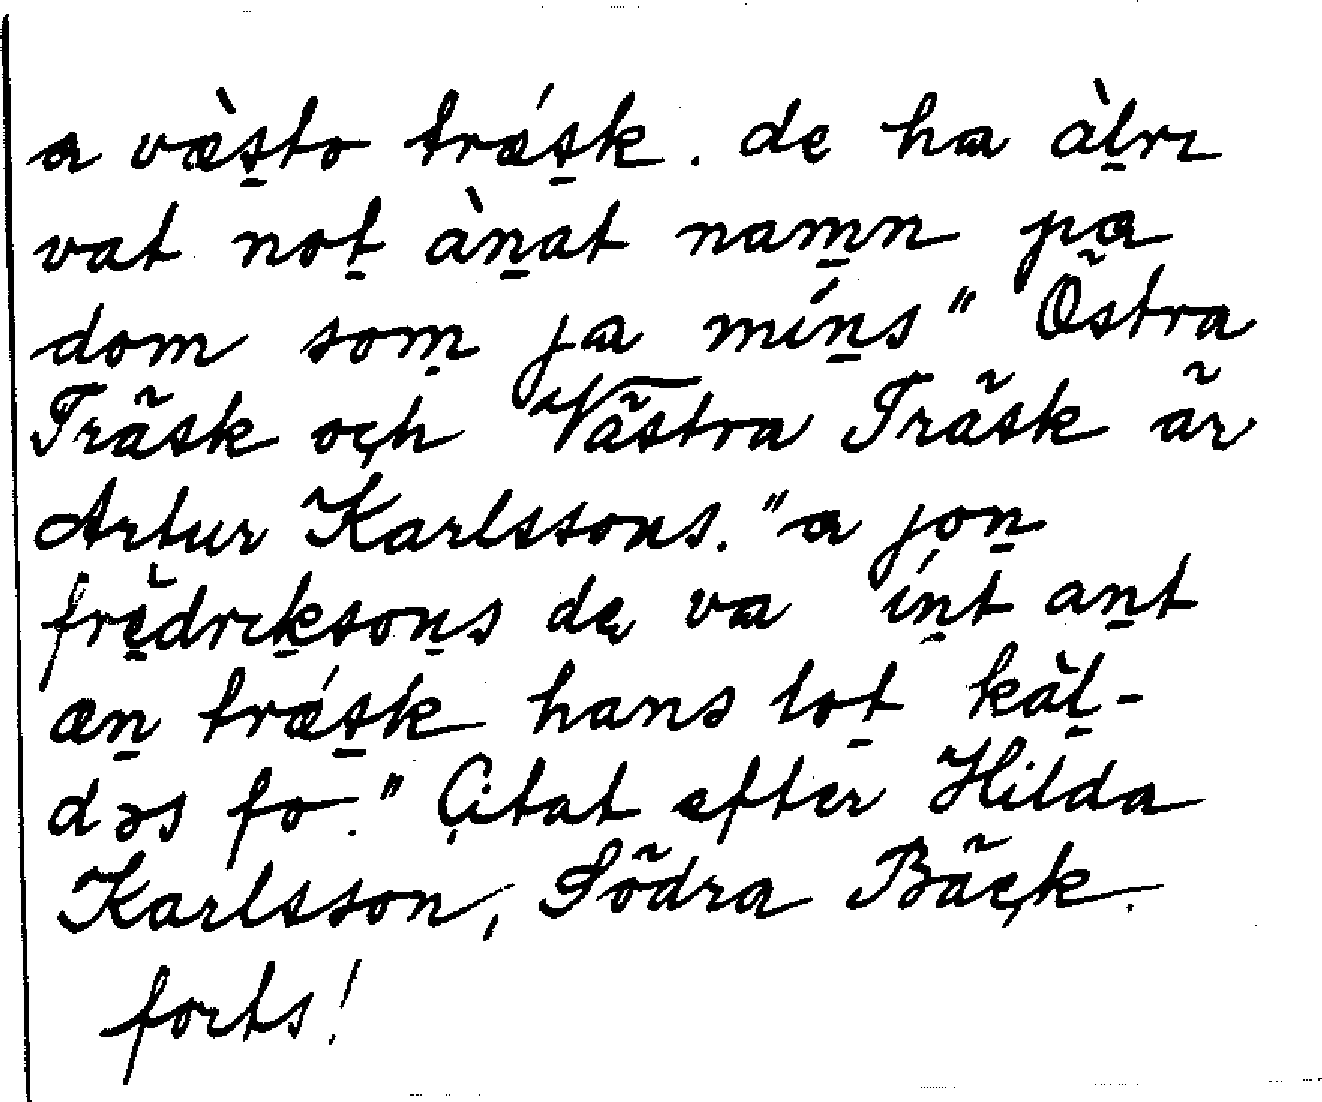 a væ̀s̠to trǽs̠k. de ha àl̠vɪ
vat not̠ àn̠at nam̠n pa
dom som̠ ja mín̠s" Östra
Träsk och Västra Träsk är
Artur Karlssons. "a jon̠
frè̠drɪk̠son̠s de va ín̠t an̠t
æn̠ trǽs̠k hans lot̠ kæ̀l̠-
dəs fo." Citat efter Hilda
Karlsson, Södra Bäck.
forts!